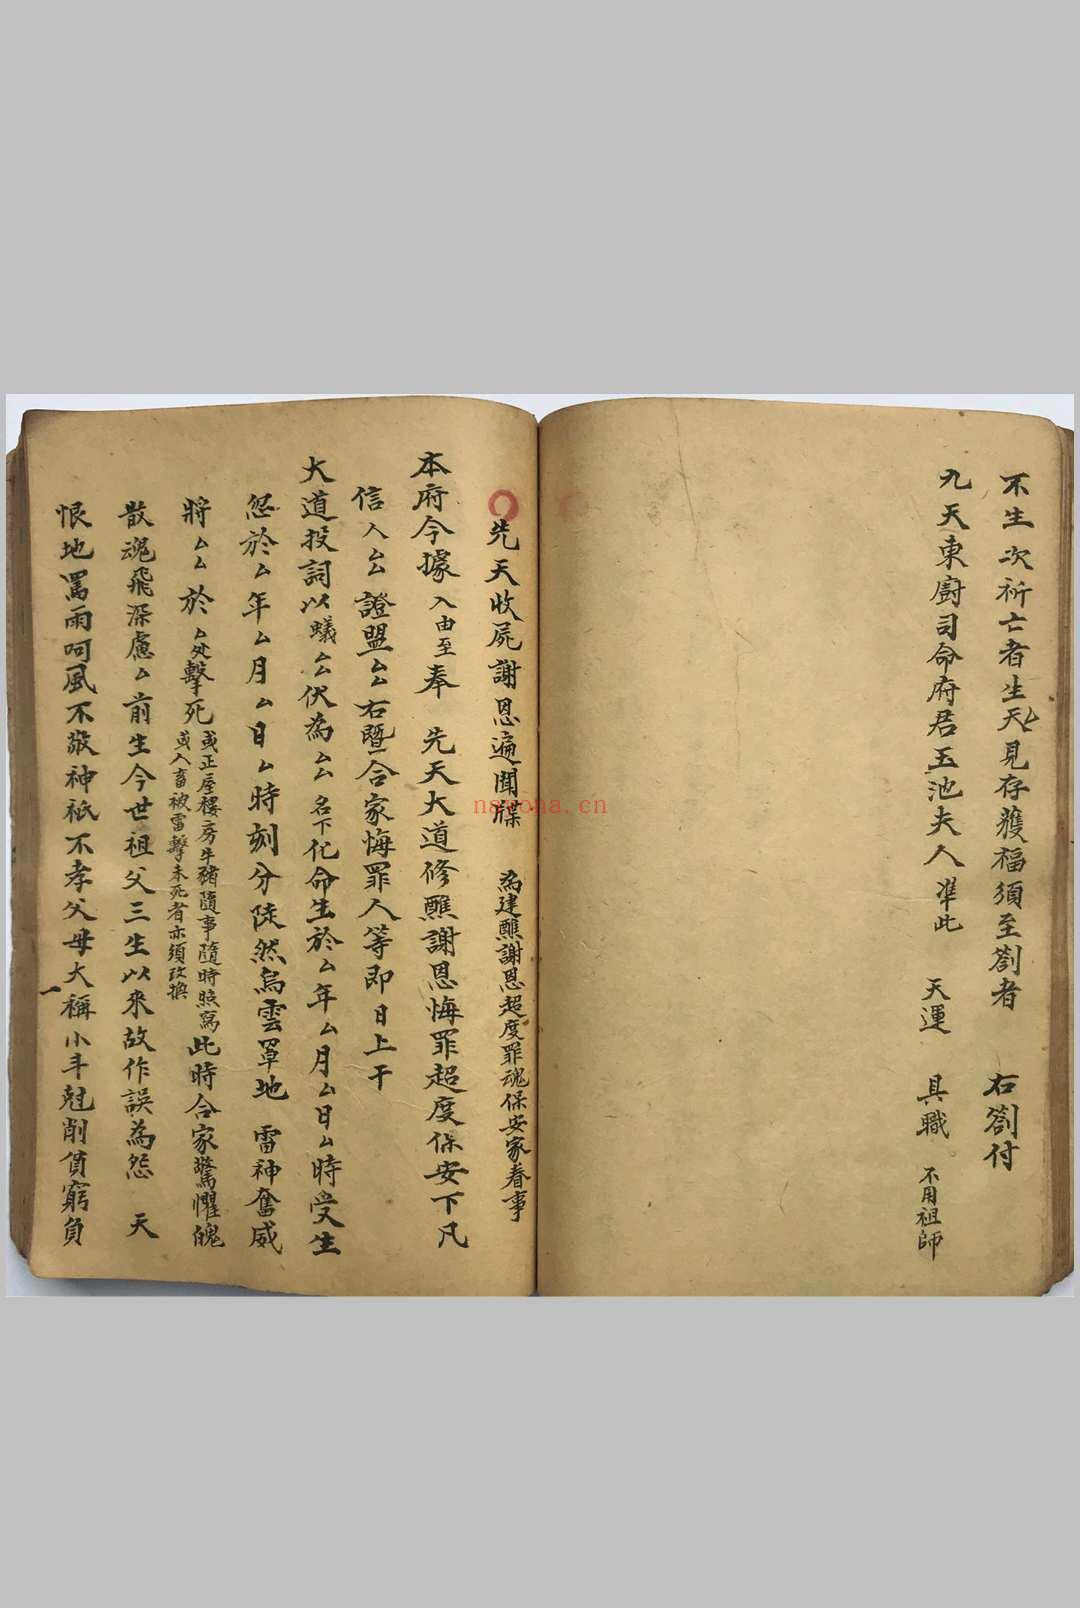 不生 次祈亡者生天 見存獲福須至劄者 右劄付
九天東廚司命府君玉池夫人准此 天運 具職 不用祖師
先天收屍謝恩遍聞牒 為建醮謝恩超度罪魂保安家眷事
本府今據 入由至 奉 先天大道修醮謝恩悔罪超度保安下凡
信人厶厶 證盟厶厶 右暨合家悔罪人等即日上干
大道投詞以蟻厶厶伏為厶厶名下化命生於厶年厶月厶日厶時受生
怨於厶年厶月厶日厶時刻分陡然烏雲罩地 雷神奮威
將厶厶於厶处擊死 或正屋樓房牛豬隨事隨時照寫
或人畜被雷擊未死者亦須改換
此時合家驚懼魄
散魂飛深慮厶前生今世祖父三生以來故作誤為怨 天
恨地罵雨呵風不敬神祇不孝父母大稱小斗尅削債窮負
nayona.cn